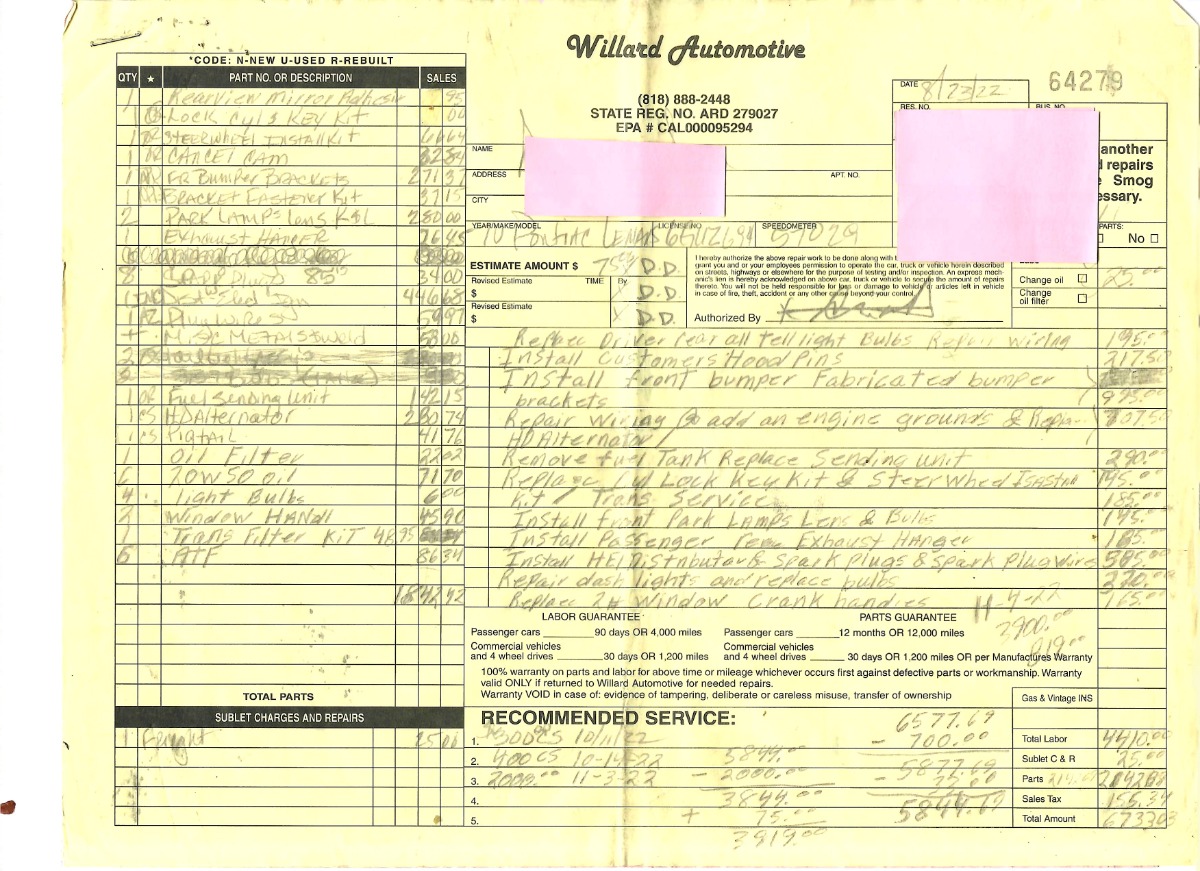 Willard Automotive
(818) 888-2448
STATE REG. NO. ARD 279027
EPA # CAL000095294
DATE 8/23/22
64279
RES. NO.
BUS. NO.
another
repairs
Smog
essary.
PARTS:
No
NAME
ADDRESS
APT. NO.
CITY
YEAR/MAKE/MODEL
LICENSE NO
SPEEDOMETER
70 Pontiac 57029
ESTIMATE AMOUNT $ D.D.
Revised Estimate TIME By
$ D.D.
Revised Estimate
$ D.D.
I hereby authorize the above repair work to be done along with
grant you and/or your employees permission to operate the car, truck or vehicle herein described
on streets, highways or elsewhere for the purpose of testing and/or inspection. An express mech-
anic's lien is hereby acknowledged on above car, truck or vehicle to secure the amount of repairs
thereto. You will not be held responsible for loss or damage to vehicle or articles left in vehicle
in case of fire, theft, accident or any other cause beyond your control.
Authorized By
Change oil 25.00
Change
oil filter
*CODE: N-NEW U-USED R-REBUILT
QTY ★ PART NO. OR DESCRIPTION SALES
1 Rearview Mirror 95
1 Lock Cyl & Key Kit
1 OR STEERWHEEL INSTALL KIT
1 OR CANCEL CAM
1 FR Bumper BRACKETS 271 37
1 BRACKET FASTENER Kit 37 15
2 PARK LAMPS Lens 280 00
1 EXHAUST HANGER 76 45
8 340 0
1 446 68
1 AZ Plug Wires
+ Misc METALS & Weld 58 00
1 OR Fuel Sending Unit 142 15
1 CS HD Alternator 230 74
1 CS PIGTAIL 41 76
1 OIL Filter 22 02
6 20W50 oil 71 70
4 light Bulbs 6 00
2 Window HANdl 45 90
1 Trans Filter KIT 48.95
6 ATF 86 34
1842 92
TOTAL PARTS
SUBLET CHARGES AND REPAIRS
1 Freight 25 00
Replace Driver rear all tell light Bulbs Repair wiring 195.00
Install Customers Hood Pins 217.50
Install front bumper Fabricated bumper
brackets 995.00
Repair Wiring & add an engine grounds & 307.50
HD Alternator
Remove fuel Tank Replace Sending unit 290.00
Replace Cyl Lock Key Kit & Steer Wheel 795.00
Kit / Trans Service 185.00
Install front Park Lamps Lens & Bulbs 145.00
Install Passenger rear Exhaust Hanger 185.00
Install HEI Distributar & Spark plugs & Spark Plug wires 585.00
Repair dash lights and replace bulbs 270.00
Replace 2# Window Crank handles 165.00
11-4-22
3900.00
019.00
LABOR GUARANTEE
Passenger cars 90 days OR 4,000 miles
Commercial vehicles
and 4 wheel drives 30 days OR 1,200 miles
PARTS GUARANTEE
Passenger cars 12 months OR 12,000 miles
Commercial vehicles
and 4 wheel drives 30 days OR 1,200 miles OR per Manufactures Warranty
100% warranty on parts and labor for above time or mileage whichever occurs first against defective parts or workmanship. Warranty
valid ONLY if returned to Willard Automotive for needed repairs.
Warranty VOID in case of: evidence of tampering, deliberate or careless misuse, transfer of ownership
RECOMMENDED SERVICE:
1. 300 CS 10/11/22
2. 400 CS 10-14-22
3. 2000.00 11-3-22
4.
5.
6577.69
- 700.00
5877.69
5844.69
5844.00
- 2000.00
3844.00
+ 75.00
3919.00
Gas & Vintage INS
Total Labor 4410.00
Sublet C & R 25.00
Parts
Sales Tax 155.34
Total Amount 6733 03